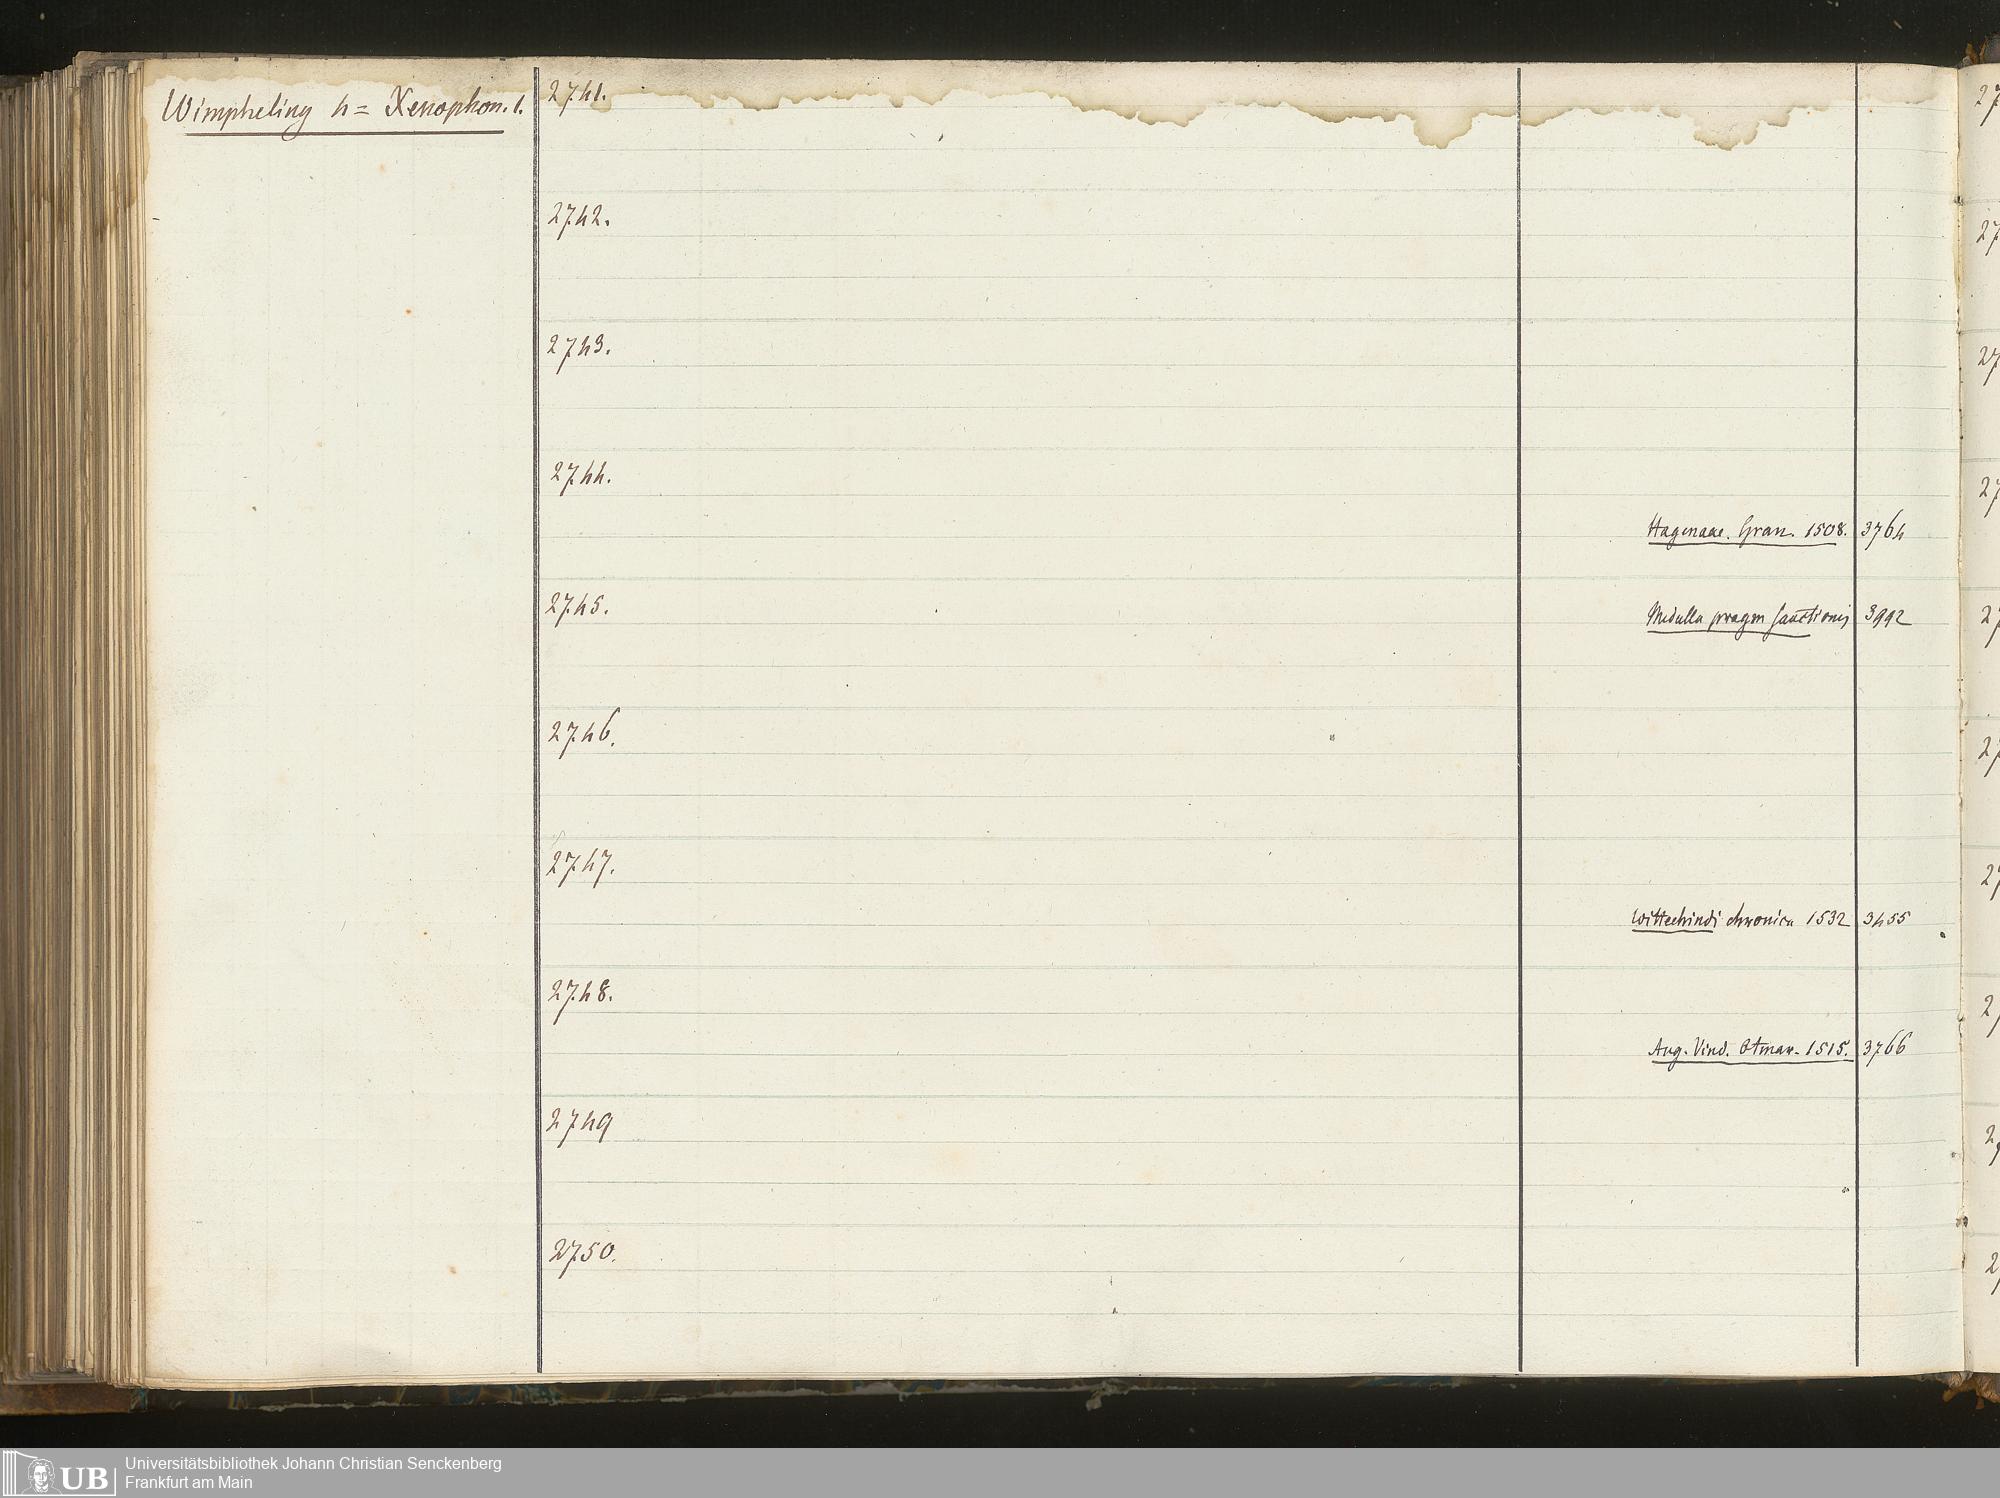 Wimpheling 4 = Xenophon. 1.
2741.
2742.
2743.
2744.
Hagenaae. Gran. 1508. 3764
2745.
Medulla pragm sanctionis 3992
2746.
2747.
Wittechindi chronica 1532 3455
2748.
Aug. Vind. Otmar. 1515. 3766
2749
2750.
Universitätsbibliothek Johann Christian Senckenberg
Frankfurt am Main
UB